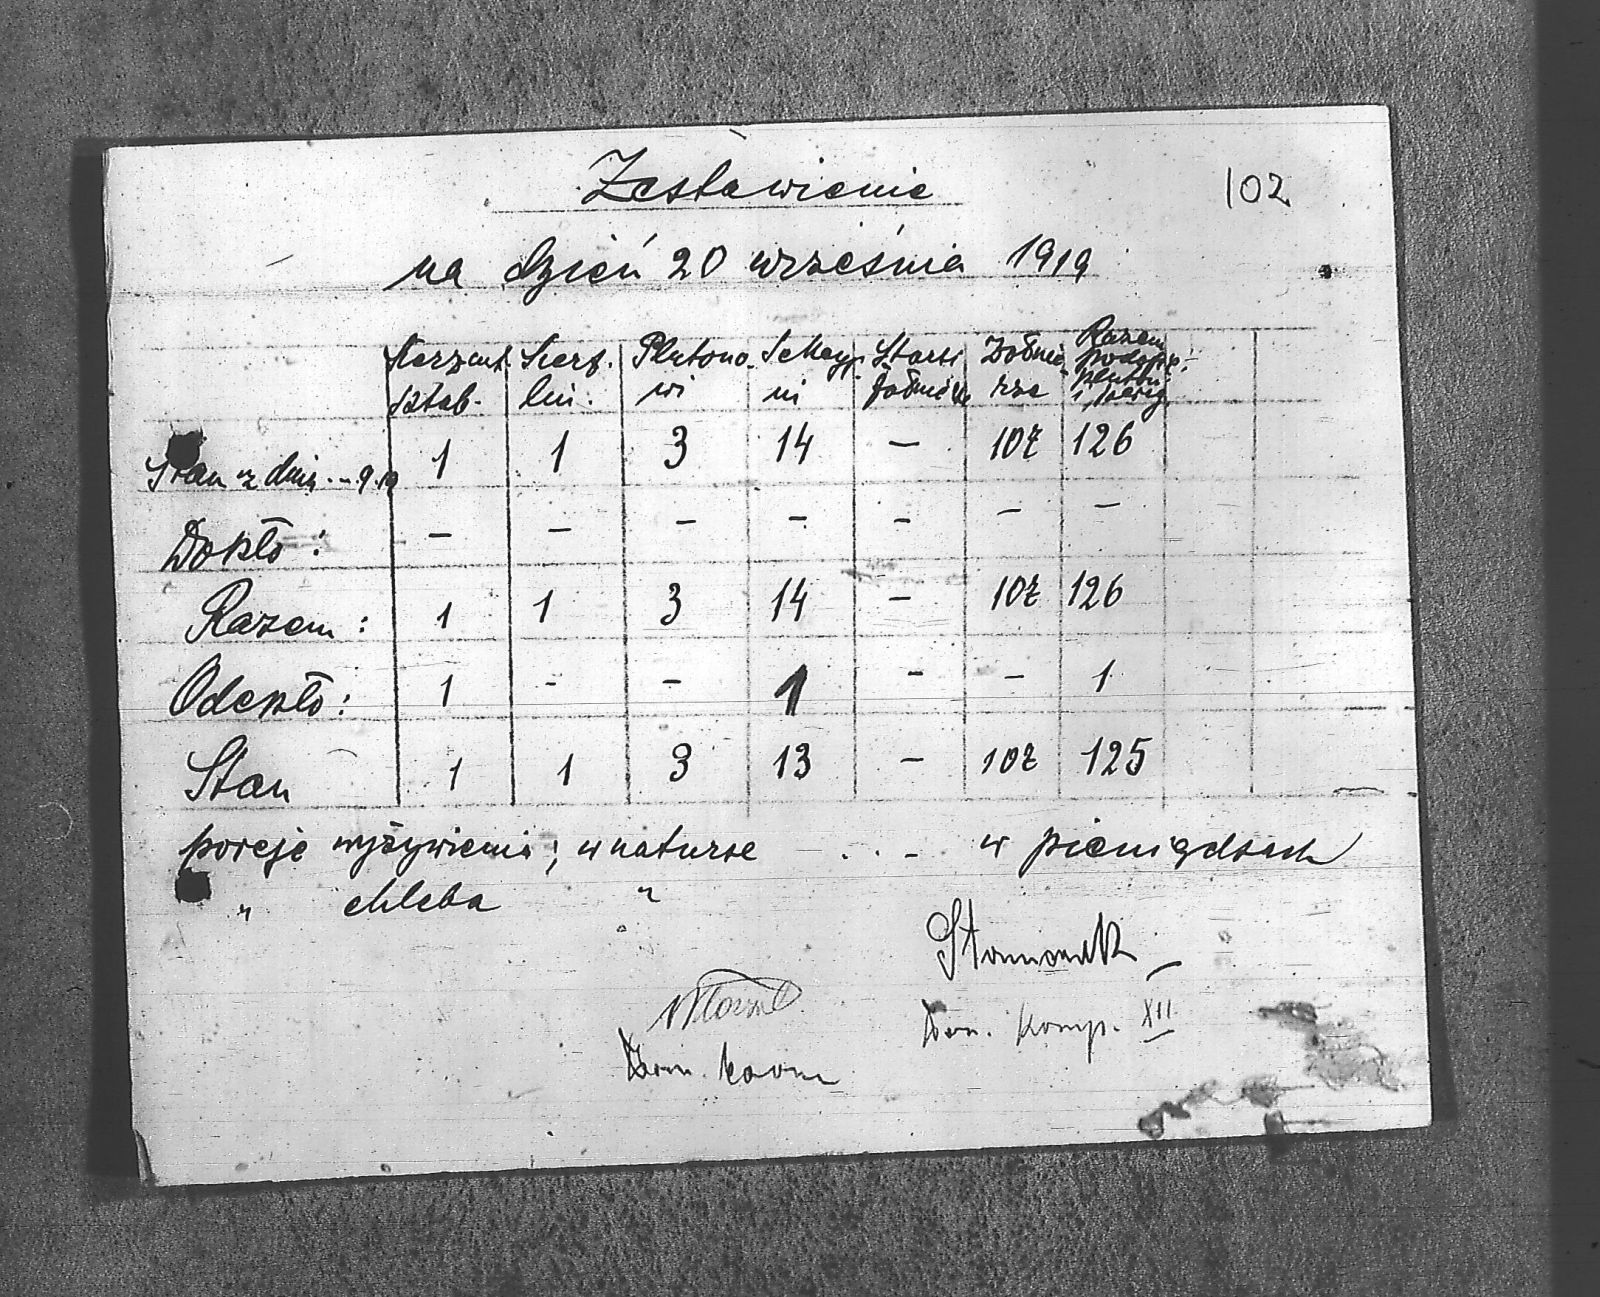 Zestawienie
102
na dzień 20 września 1919
Sierżant. Sierż. Plutono- Sekcyj- Starsi Żołnie- Razem
sztab. lin. wi ni żołnierze rze podofic.
plutton. i żołnierz.
Stan z dnia .-. 9.19 1 1 3 14 - 107 126
Doszło: - - - - - - -
Razem: 1 1 3 14 - 107 126
Odeszło: 1 - - 1 - - 1
Stan 1 1 3 13 - 107 125
porcje wyżywienia; w naturze . . - w pieniądzach
" chleba "
Dow. Komp. XII
Dow.